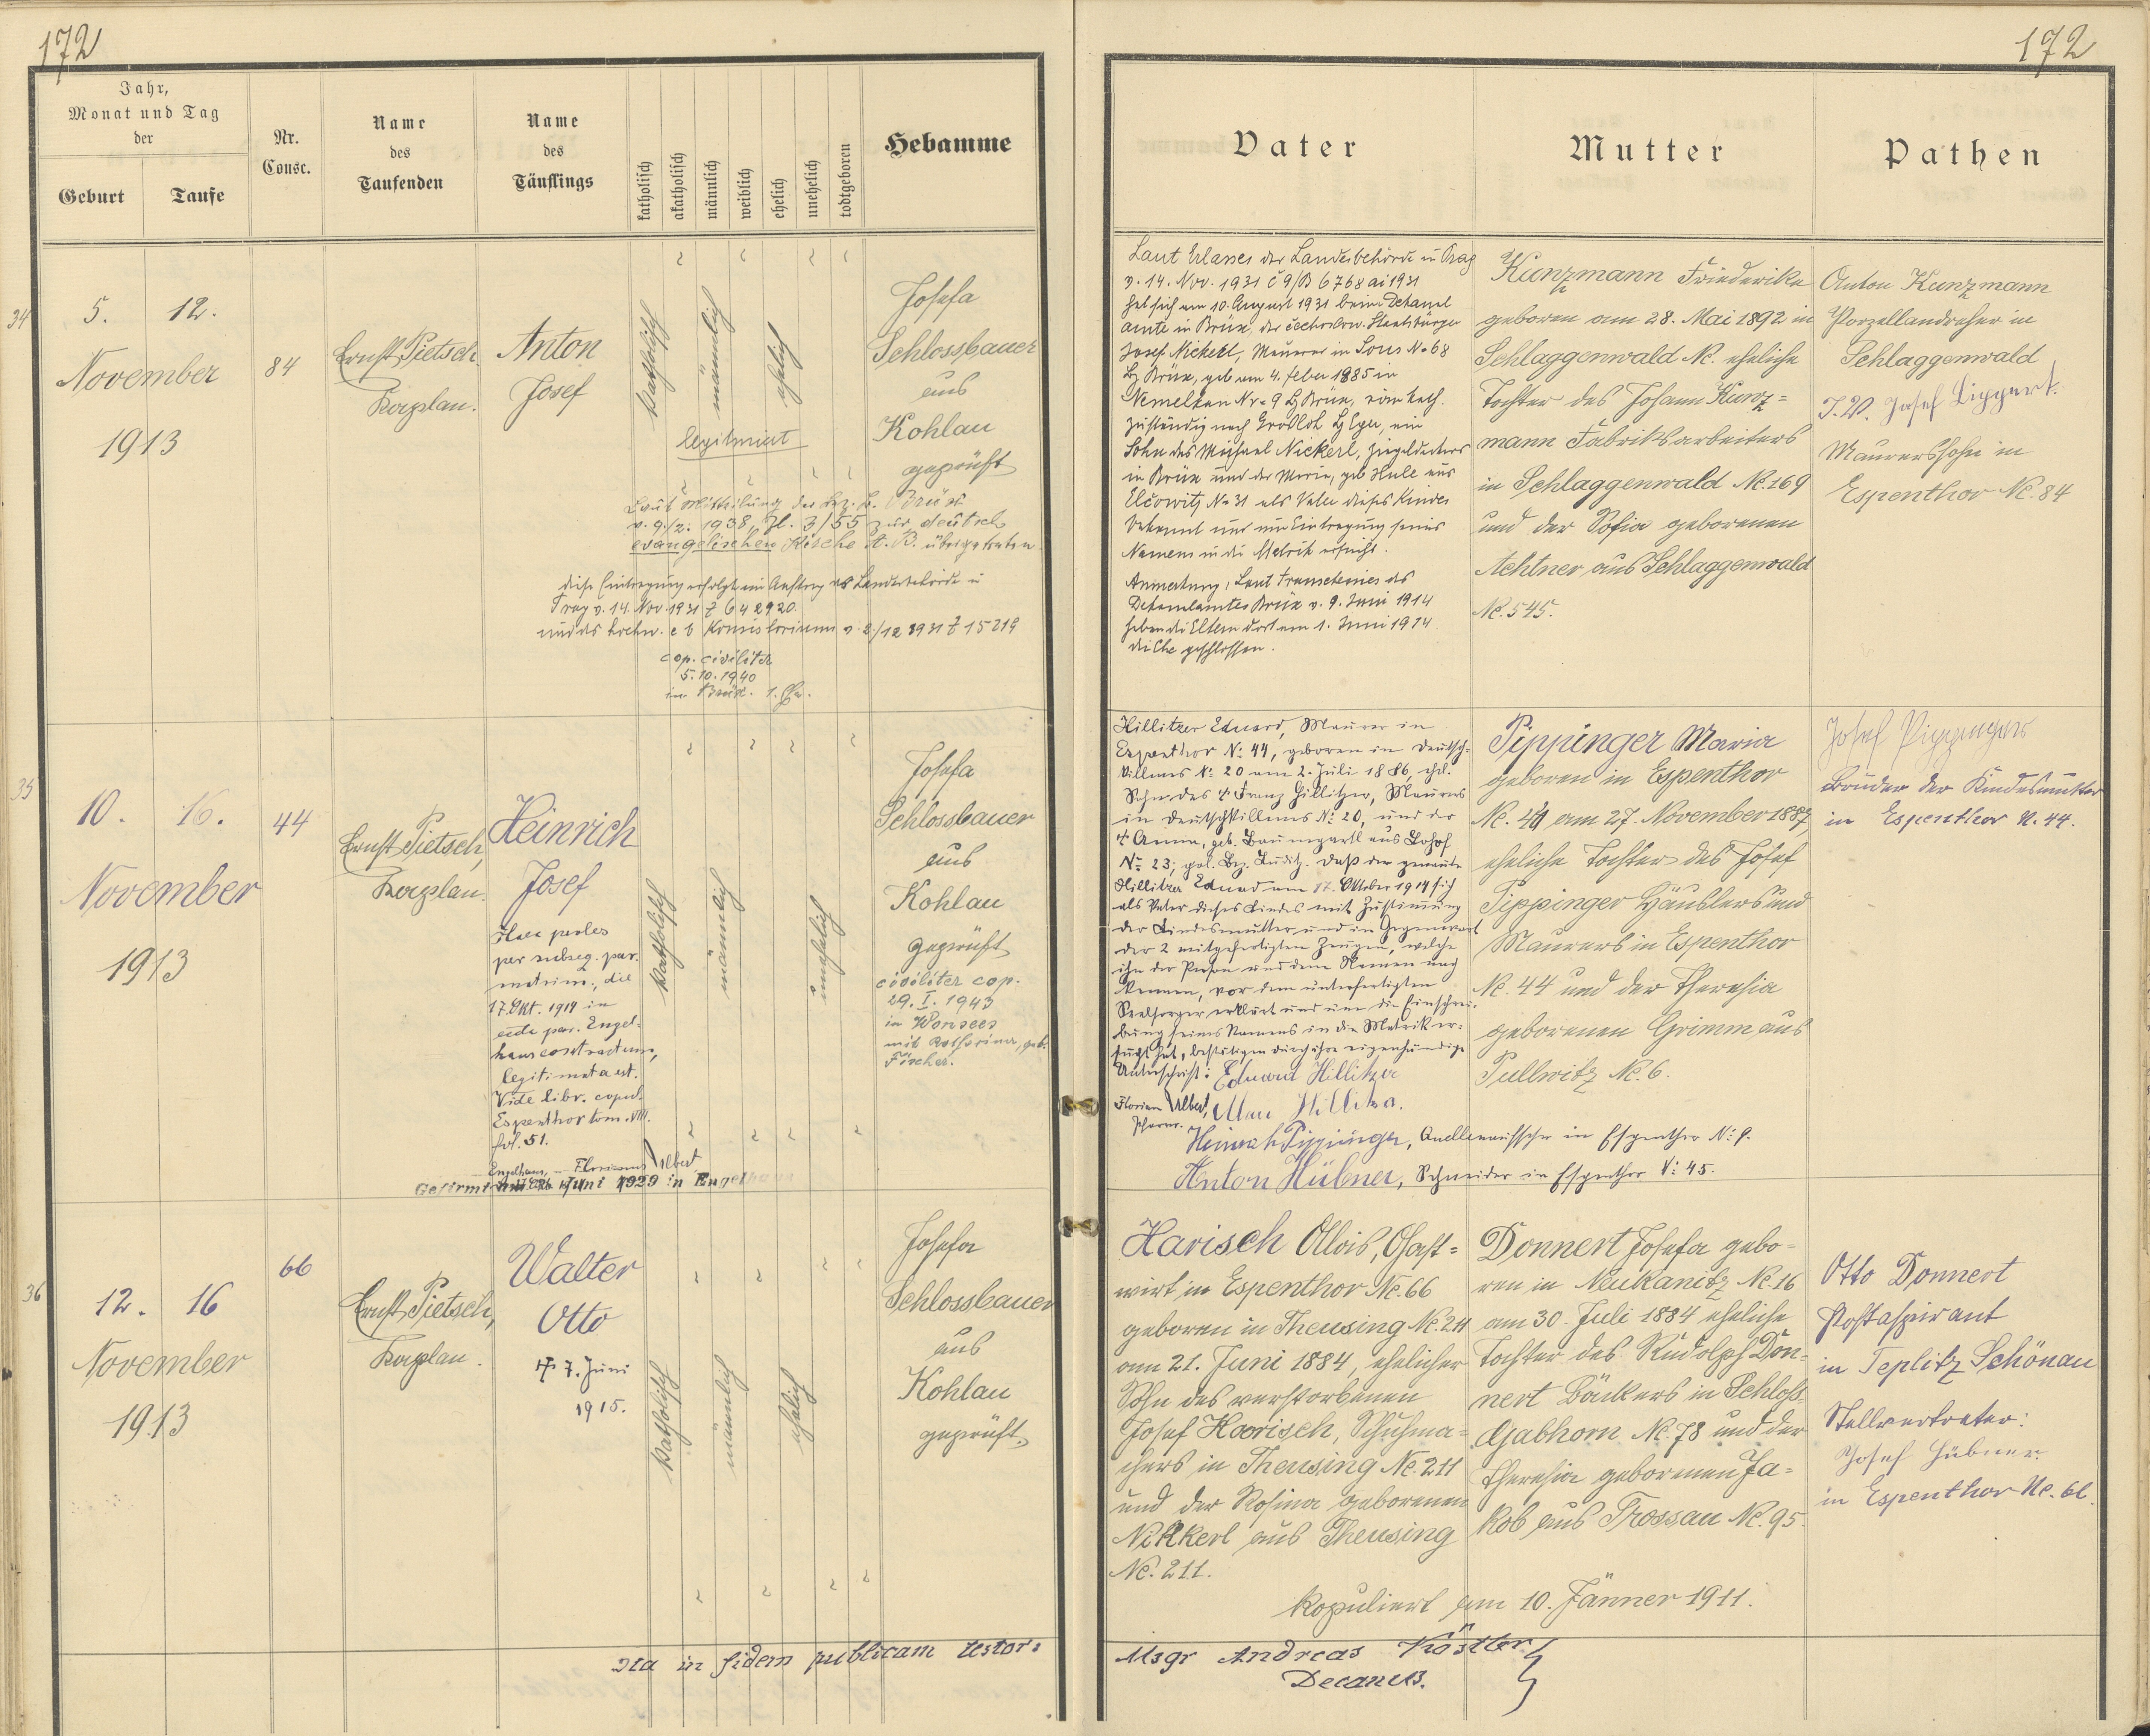 172
172
Jahr,
Monat und Tag
der
Geburt
Taufe
Nr.
Consc.
Name
des
Taufenden
Name
des
Täuflings
katholisch
akatholisch
männlich
weiblich
ehelich
unehelich
todtgeboren
Hebamme
Vater
Mutter
Pathen
34
5. 12.
November
1913
84
Ernst Pietsch
Kaplan.
Anton
Josef
katholisch
männlich
ehelich
legitimiert
Josefa
Schlossbauer
aus
Kohlau
geprüft
Laut Mitteilung der Bez. B. Brüx
v. 9./2. 1938, Zl. 3/55 zur deutsch
evangelischen Kirche A. B. übergetreten.
diese Eintragung erfolgt im Auftrag der Landesbehörde in
Prag v. 14. Nov 1931 Z 642920.
und des hochw. e b Konsistoriums v. 2/12 1931 Z 15219
cop. civiliter
5. 10. 1940
in Brüx.
Laut Erlasses der Landesbehörde in Prag
v. 14. Nov. 1931 č 9/B 6768 ai 1931
hat sich am 10. August 1931 beim Dekanal
amte in Brüx, der čechoslow. Staatsbürger
Josef Nickerl, Maurer in Sous No 68
Bz Brüx, geb am 4. feber 1885 in
Nemelkau Nr. 9 Bz Brüx, röm kath.
zuständig nach Bz Eger, ein
Sohn des Michael Nickerl, Ziegeldeckers
in Brüx und der Maria, geb Hule aus
Elčowitz No 31 als Vater dieses Kindes
bekannt und um Eintragung seines
Namens in die Matrik ersucht.
Anmerkung: Laut des
Dekanalamtes Brüx v. 9. Juni 1914
haben die Eltern dort am 1. Juni 1914
die Ehe geschlossen.
Kunzmann Friederike
geboren am 28. Mai 1892 in
Schlaggenwald No. eheliche
Tochter des Johann Kunz=
mann Fabriksarbeiters
in Schlaggenwald No. 169
und der Sofia geborenen
Achtner aus Schlaggenwald
No. 545.
Anton Kunzmann
Porzellandreher in
Schlaggenwald
I. V. Josef Lippert.
Maurerssohn in
Espenthor No. 84
35
10. 16.
November
1913
44
Ernst Pietsch,
Kaplan.
Heinrich
Josef
Haec proles
per subseq. par.
matrim., die
17. Okt. 1919 in
eccla par. Engel-
haus contractum,
legitimata est.
Vide libr. copul.
Espenthor tom. VIII.
fol. 51.
Engelhaus, Florianus Albert
Gefirmt Juni 1929 in Engelhaus
katholisch
männlich
unehelich
Josefa
Schlossbauer
aus
Kohlau
geprüft
civiliter cop.
29. I. 1943
in Wonsees
mit Katharina, geb.
Fischer.
Hillitzer Eduard, Maurer in
Espenthor No: 44, geboren in Deutsch-
killmes No: 20 am 2. Juli 1886, ehel.
Sohn des + Franz Hillitzer, Maurers
in Deutschkillmes No: 20, und der
+ Anna, geb. Baumgartl aus Lohof
No 23, pol. Bez. Luditz. Daß der genannte
Hillitzer Eduard am 17. Oktober 1919 sich
als Vater dieses Kindes mit Zustimmung
der Kindesmutter und in Gegenwart
der 2 mitgefertigten Zeugen, welche
ihn der Person und dem Namen nach
kennen, vor dem unterfertigten
Seelsorger erklärt und um die Einschrei-
bung seines Namens in die Matrik er-
sucht hat, bestätigen durch ihre eigenhändige
Unterschrift: Eduard Hillitzer
Florian Albert, Hillitza.
Pfarrer.
Heinrich Pippinger, Quellenaufseher in Espenthor No: 9.
Anton Hübner, Schneider in Espenthor No: 45.
Pippinger Maria
geboren in Espenthor
No. 44 am 27. November 1887
eheliche Tochter des Josef
Pippinger Häuslers und
Maurers in Espenthor
No. 44 und der Theresia
geborenen Grimm aus
Pullwitz No. 6.
Josef Pippinger
Bruder der Kindesmutter
in Espenthor N. 44.
36
12. 16
November
1913
66
Ernst Pietsch,
Kaplan.
Walter
Otto
+ 7. Juni
1915.
katholisch
männlich
ehelich
Josefa
Schlossbauer
aus
Kohlau
geprüft.
Harisch Alois, Gast=
wirt in Espenthor No. 66
geboren in Theusing No. 211
am 21. Juni 1884, ehelicher
Sohn des verstorbenen
Josef Harisch, Schuhma=
chers in Theusing No. 211
und der Rosina geborenen
Nikkerl aus Theusing
No. 211.
Donnert Josefa gebo=
ren in Neukanitz No. 16
am 30. Juli 1884 eheliche
Tochter des Rudolph Don=
nert Bäckers in Schloss
Gabhorn No. 78 und der
Theresia geborenen Ja=
kob aus Trossau No. 95.
kopuliert am 10. Jänner 1911.
Otto Donnert
Postaspirant
in Teplitz Schönau
Stellvertreter:
Josef Hübner.
in Espenthor No. 61.
Ita in fidem publicam testor:
Msgr Andreas Köstler
Decanus.